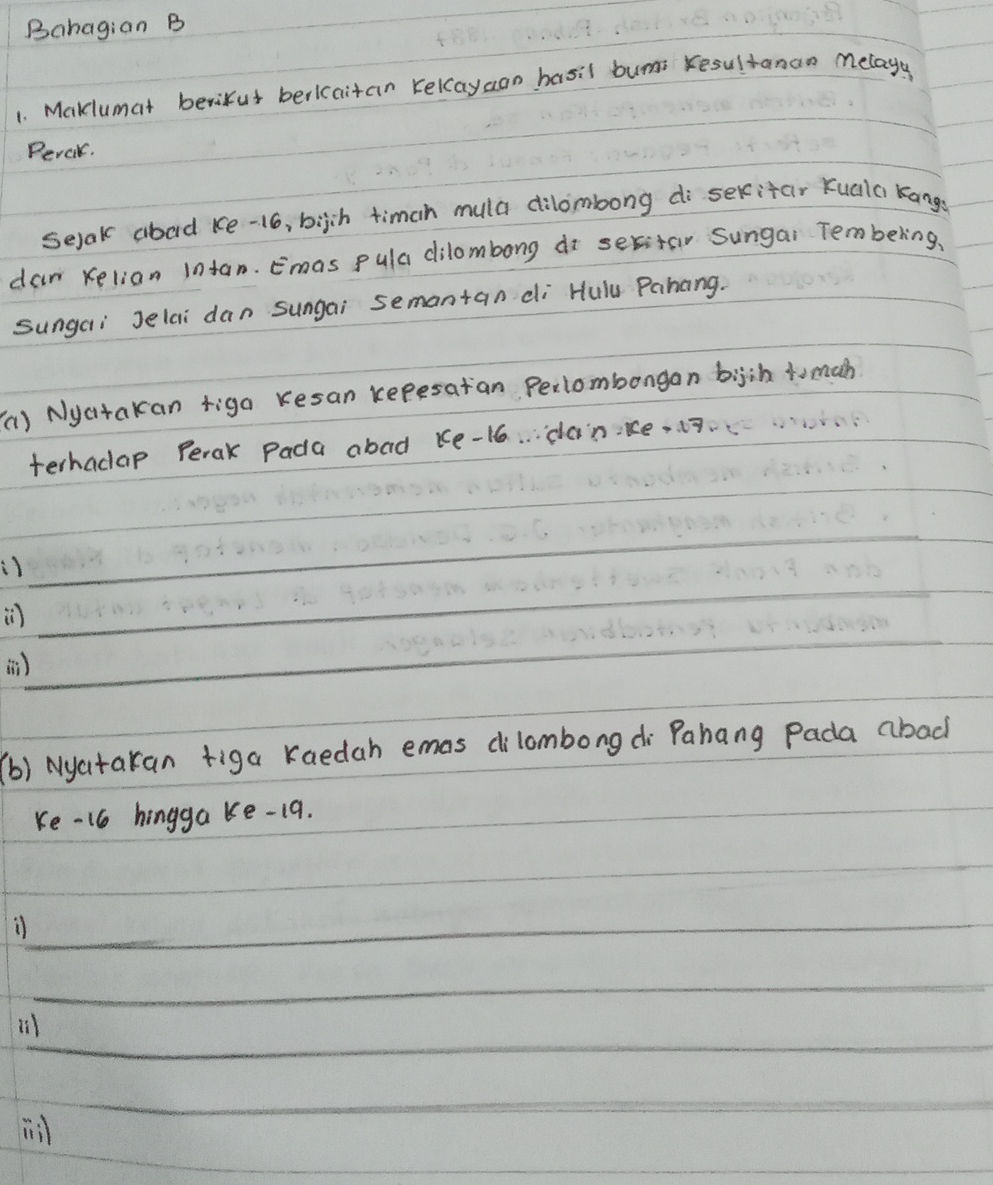 Bahagian B
1. Maklumat berikut berkaitan kekayaan hasil bumi Kesultanan Melayu
Perak.
Sejak abad ke-16, bijih timah mula dilombong di sekitar Kuala Kangs
dan Kelian Intan. Emas pula dilombong di sekitar Sungai Tembeling,
Sungai Jelai dan Sungai Semantan di Hulu Pahang.
(a) Nyatakan tiga kesan kepesatan Perlombongan bijih timah
terhadap Perak Pada abad ke-16 dan ke-17.
i)
ii)
iii)
(b) Nyatakan tiga kaedah emas dilombong di Pahang Pada abad
ke-16 hingga ke-19.
i)
ii)
iii)